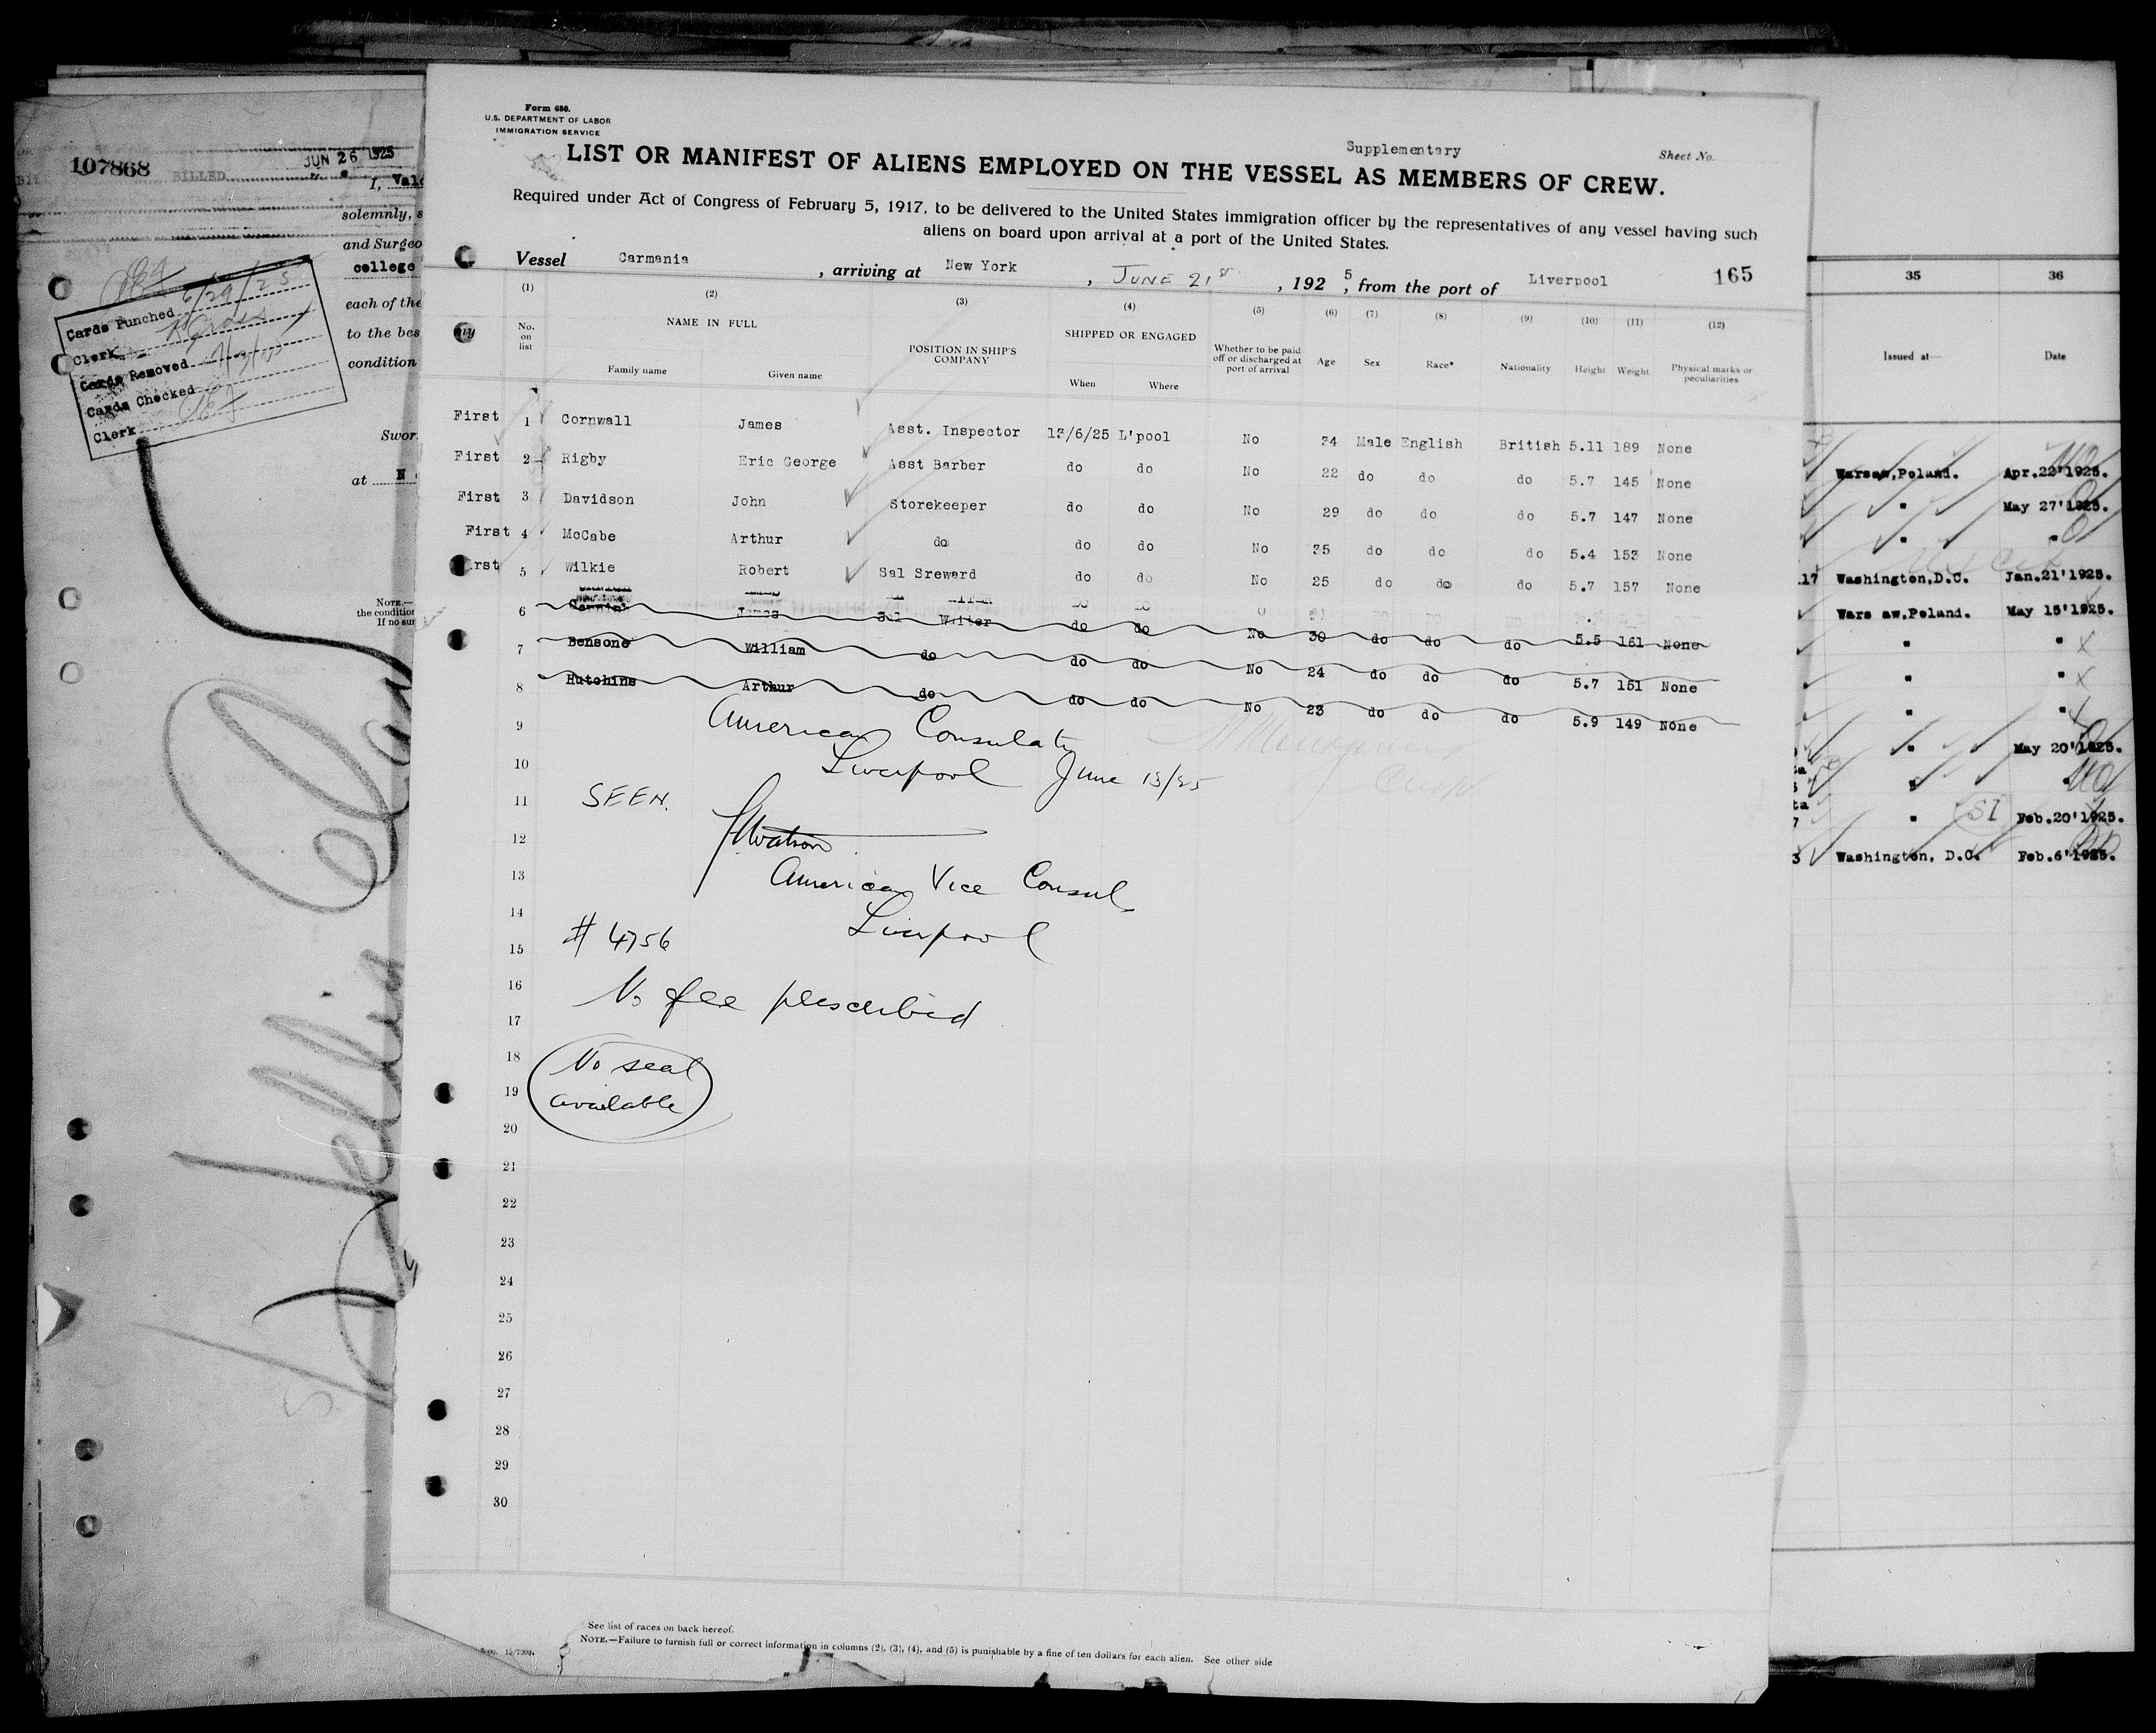 107868
BILLED
JUN 26 1925
I,
solemnly, s
and Surgeo
college
each of the
to the bes
condition
Swor
at N
NOTE.—
the condition
If no sur
6/29/25
Cards Punched
Clerk
Cards Removed
Cards Checked
Clerk
Form 680.
U.S. DEPARTMENT OF LABOR
IMMIGRATION SERVICE
Supplementary
Sheet No.
LIST OR MANIFEST OF ALIENS EMPLOYED ON THE VESSEL AS MEMBERS OF CREW.
Required under Act of Congress of February 5, 1917, to be delivered to the United States immigration officer by the representatives of any vessel having such
aliens on board upon arrival at a port of the United States.
Vessel Carmania, arriving at New York, JUNE 21st, 1925, from the port of Liverpool 165
(1) (2) (3) (4) (5) (6) (7) (8) (9) (10) (11) (12)
No. on list NAME IN FULL POSITION IN SHIP'S COMPANY SHIPPED OR ENGAGED Whether to be paid off or discharged at port of arrival Age Sex Race* Nationality Height Weight Physical marks or peculiarities
Family name Given name When Where
First 1 Cornwall James Asst. Inspector 13/6/25 L'pool No 34 Male English British 5.11 189 None
First 2 Rigby Eric George Asst Barber do do No 22 do do do 5.7 145 None
First 3 Davidson John Storekeeper do do No 29 do do do 5.7 147 None
First 4 McCabe Arthur do do do No 35 do do do 5.4 153 None
rst 5 Wilkie Robert Sal Sreward do do No 25 do do do 5.7 157 None
6 James Sal Waiter do do No 30 do do do 5.5 161 None
7 Bensone William do do do No 24 do do do 5.7 151 None
8 Hutchins Arthur do do do No 23 do do do 5.9 149 None
9 American Consulate
10 Liverpool June 13/25
11 SEEN.
12 Watson
13 American Vice Consul
14 Liverpool
15 # 4756
16 No fee prescribed
17
18 No seal
19 available
20
21
22
23
24
25
26
27
28
29
30
See list of races on back hereof.
NOTE.—Failure to furnish full or correct information in columns (2), (3), (4), and (5) is punishable by a fine of ten dollars for each alien. See other side
35 36
Issued at— Date
Warsaw,Poland. Apr.22'1925.
" May 27'1925.
" "
17 Washington,D.C. Jan.21'1925.
Wars aw,Poland. May 15'1925.
" "
" "
" "
" May 20'1925.
" "
" SI Feb.20'1925.
3 Washington, D.C. Feb.6'1925.